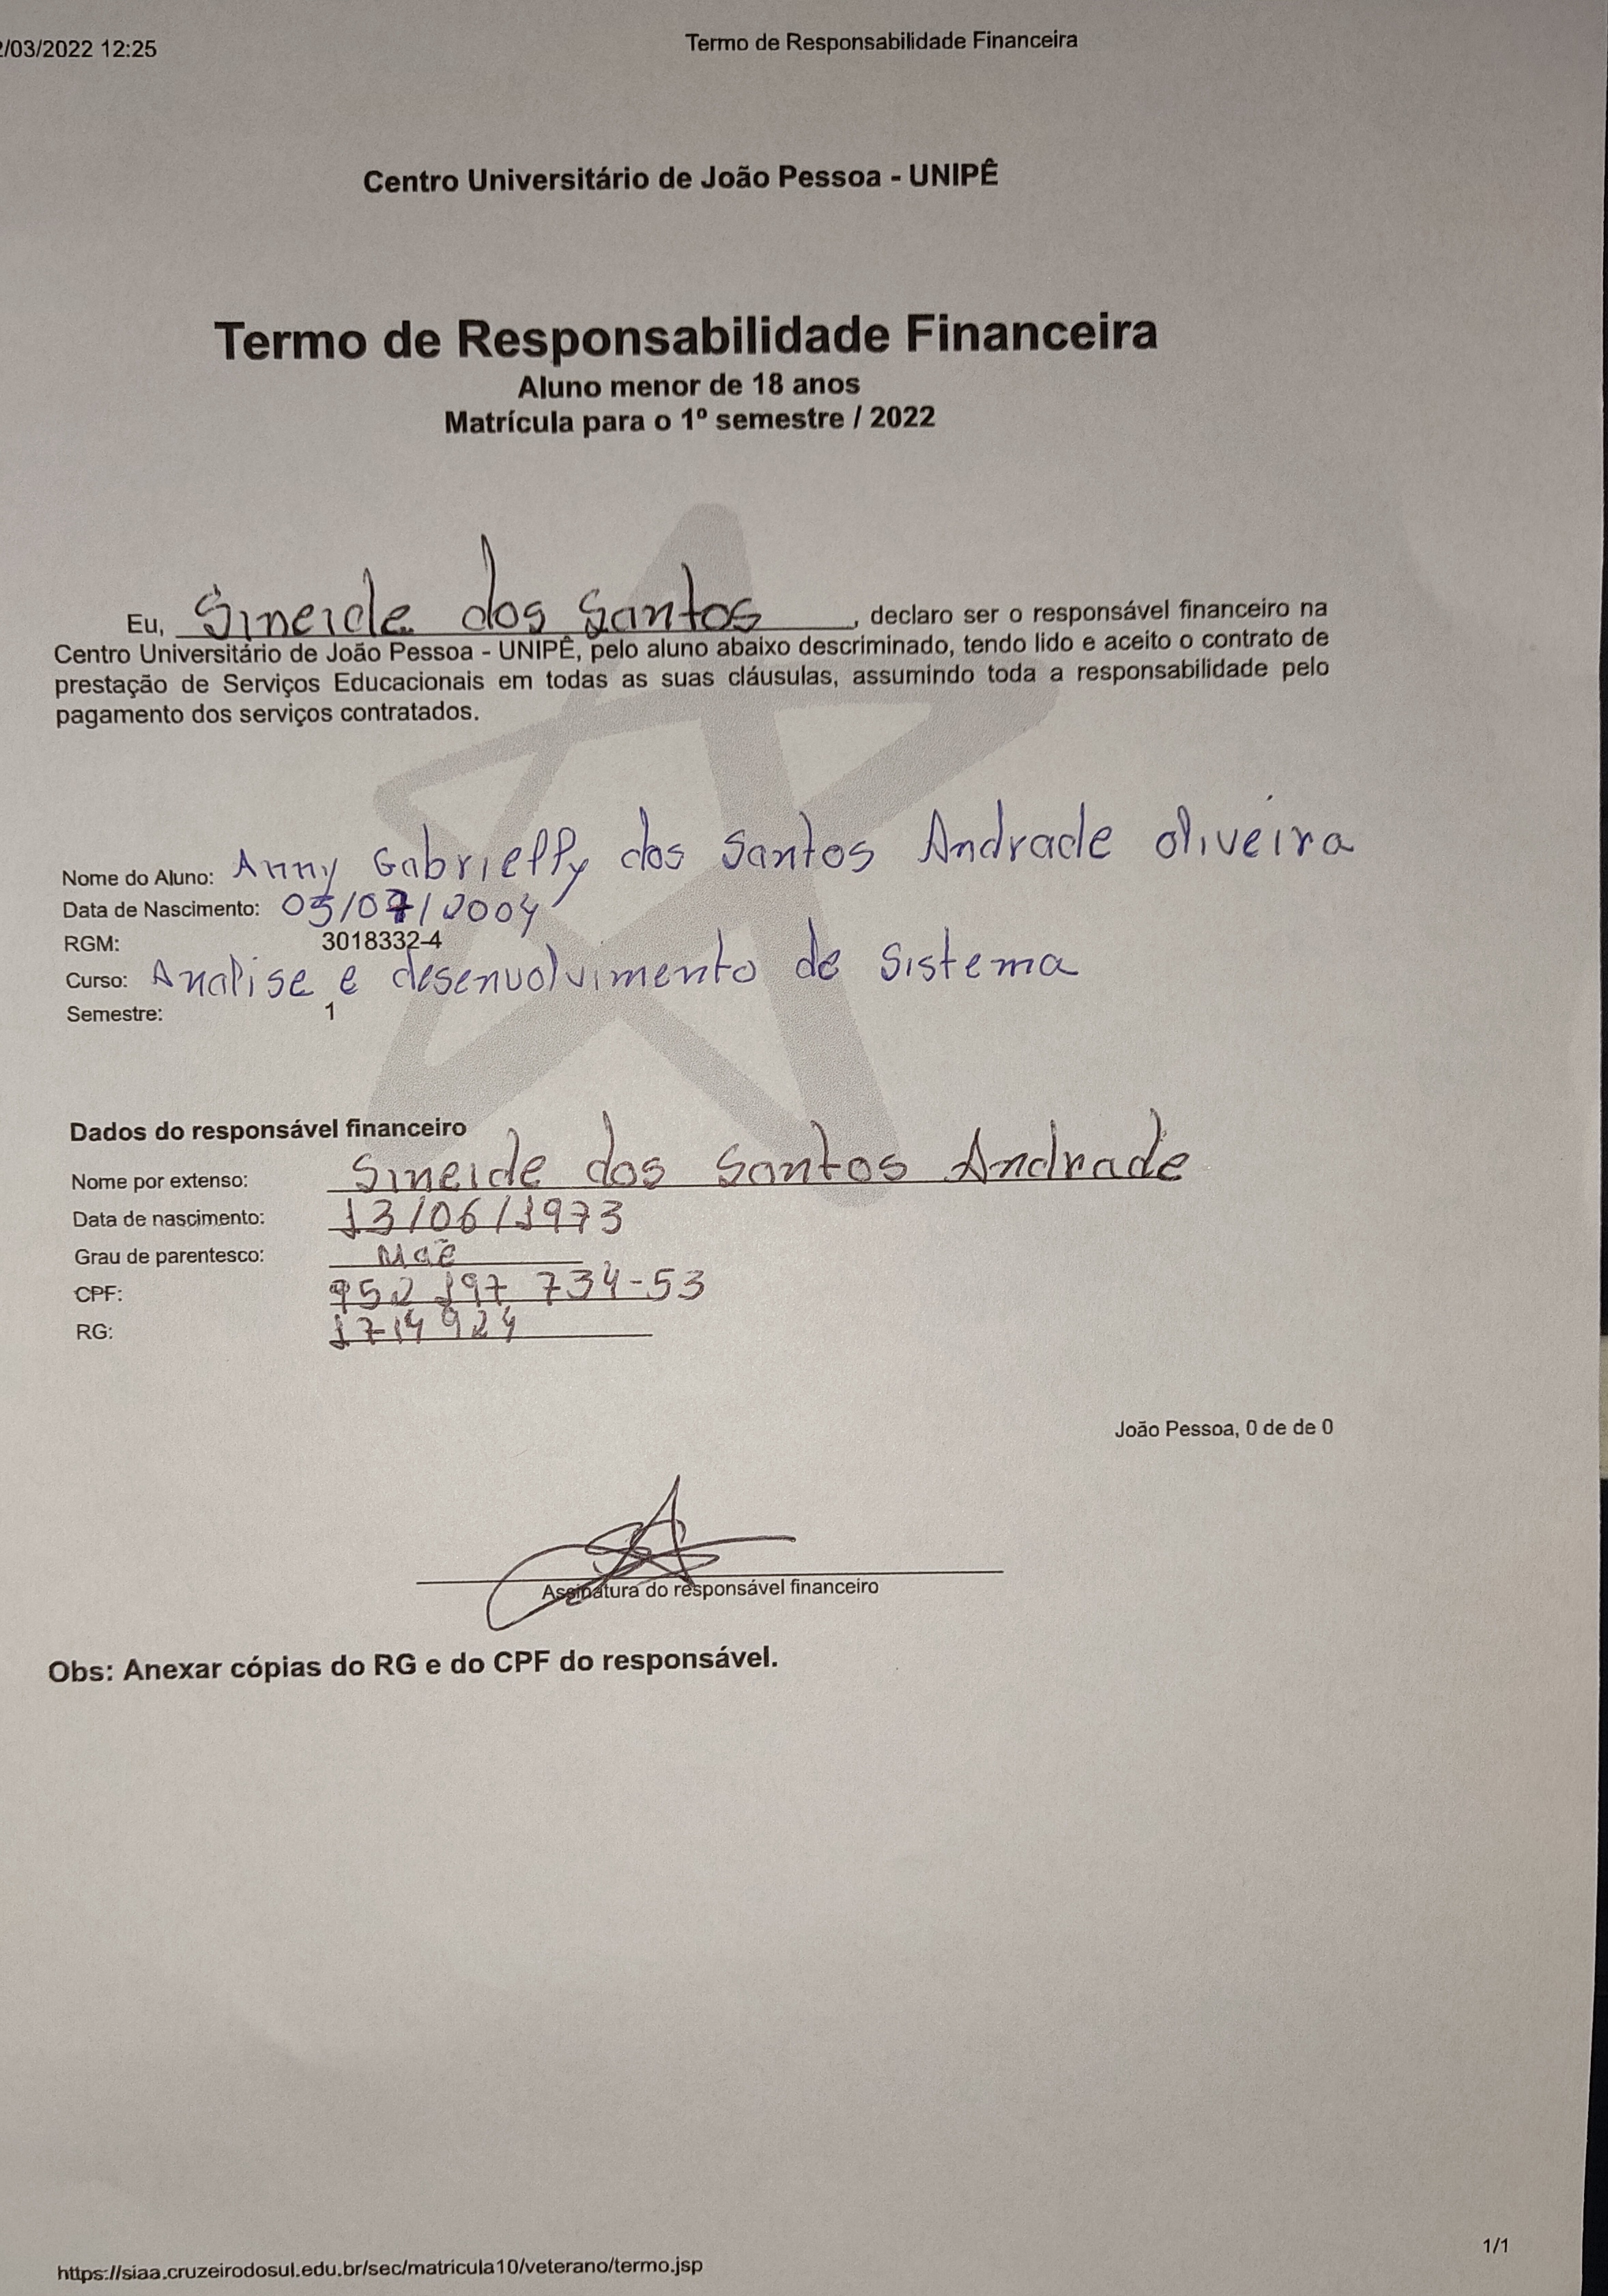 2/03/2022 12:25 Termo de Responsabilidade Financeira
Centro Universitário de João Pessoa - UNIPÊ
Termo de Responsabilidade Financeira
Aluno menor de 18 anos
Matrícula para o 1º semestre / 2022
Eu, Sineide dos Santos, declaro ser o responsável financeiro na
Centro Universitário de João Pessoa - UNIPÊ, pelo aluno abaixo descriminado, tendo lido e aceito o contrato de
prestação de Serviços Educacionais em todas as suas cláusulas, assumindo toda a responsabilidade pelo
pagamento dos serviços contratados.
Nome do Aluno: Anny Gabrielly dos Santos Andrade oliveira
Data de Nascimento: 05/07/2004
RGM: 3018332-4
Curso: Analise e desenvolvimento de Sistema
Semestre: 1
Dados do responsável financeiro
Nome por extenso: Sineide dos Santos Andrade
Data de nascimento: 13/06/1973
Grau de parentesco: Mãe
CPF: 952 197 734-53
RG: 1714924
João Pessoa, 0 de de 0
Assinatura do responsável financeiro
Obs: Anexar cópias do RG e do CPF do responsável.
1/1
https://siaa.cruzeirodosul.edu.br/sec/matricula10/veterano/termo.jsp